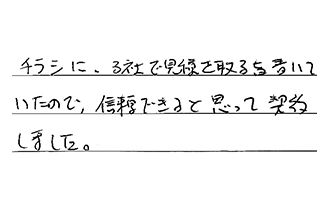 チラシに、3社で見積を取ると書いて
いたので、信頼できると思って契約
しました。